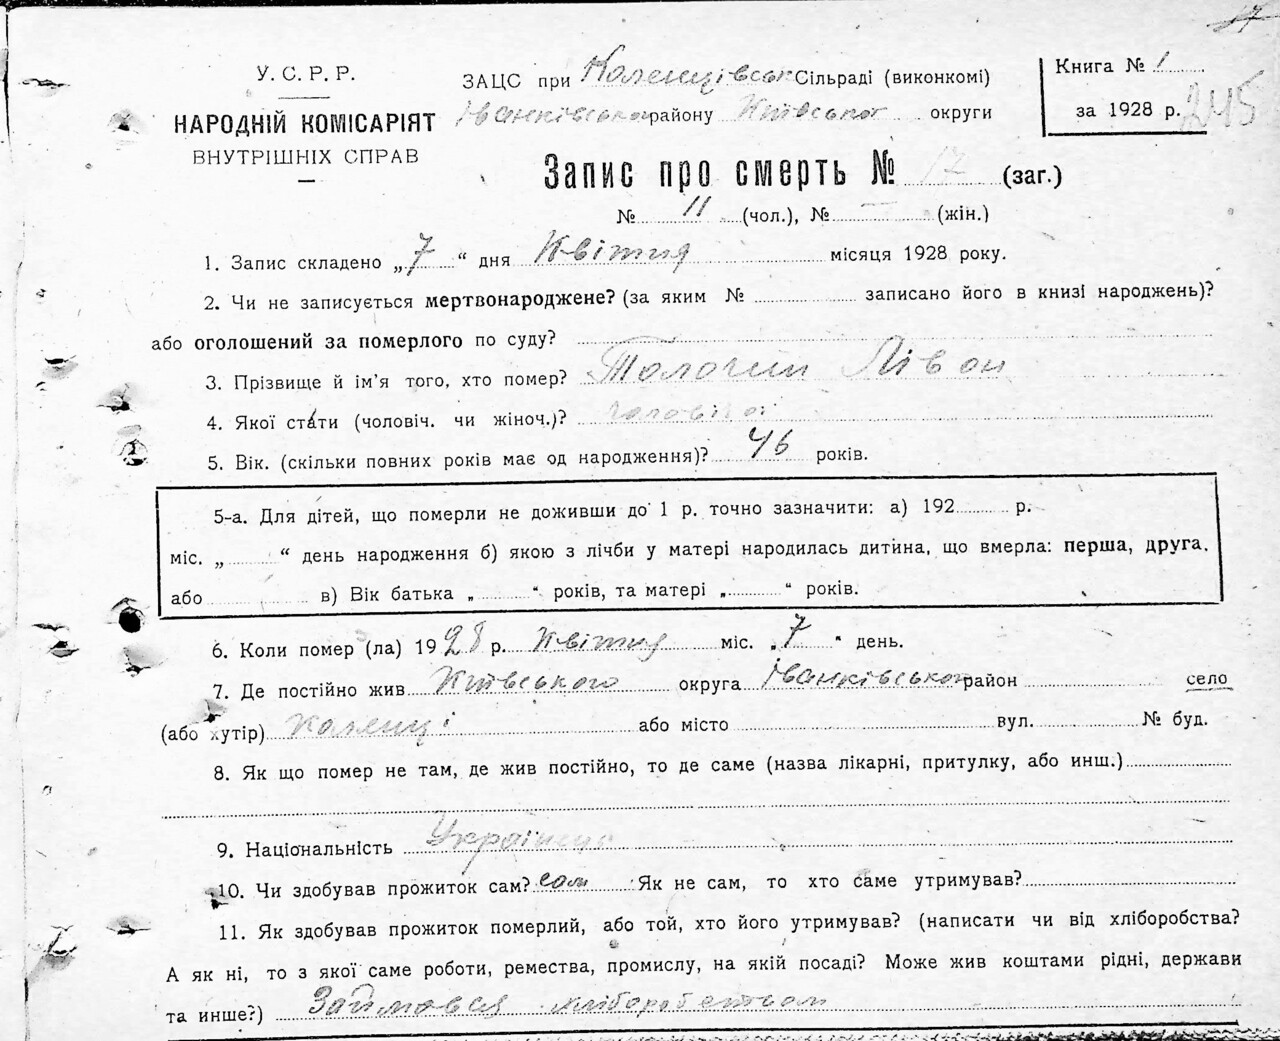 17
У. С. Р. Р.
НАРОДНІЙ КОМІСАРІЯТ
ВНУТРІШНІХ СПРАВ
ЗАЦС при Коленцівськ Сільраді (виконкомі)
Іванківського району Київської округи
Книга № 1
за 1928 р. 245
Запис про смерть № 17 (заг.)
№ 11 (чол.), № — (жін.)
1. Запис складено „7“ дня Квітня місяця 1928 року.
2. Чи не записується мертвонароджене? (за яким № записано його в книзі народжень)?
або оголошений за померлого по суду?
3. Прізвище й ім'я того, хто помер? Лівон
4. Якої статі (чоловіч. чи жіноч.)? чоловічої
5. Вік. (скільки повних років має од народження)? 46 років.
5-а. Для дітей, що померли не доживши до 1 р. точно зазначити: а) 192 р.
міс. „ “ день народження б) якою з лічби у матері народилась дитина, що вмерла: перша, друга,
або в) Вік батька „ “ років, та матері „ “ років.
6. Коли помер (ла) 1928 р. Квітня міс. „7“ день.
7. Де постійно жив Київського округа Іванківського район село
(або хутір) Коленці або місто вул. № буд.
8. Як що помер не там, де жив постійно, то де саме (назва лікарні, притулку, або инш.)
9. Національність Українець
10. Чи здобував прожиток сам? сам Як не сам, то хто саме утримував?
11. Як здобував прожиток померлий, або той, хто його утримував? (написати чи від хліборобства?
А як ні, то з якої саме роботи, ремества, промислу, на якій посаді? Може жив коштами рідні, держави
та инше?) Займався хліборобством